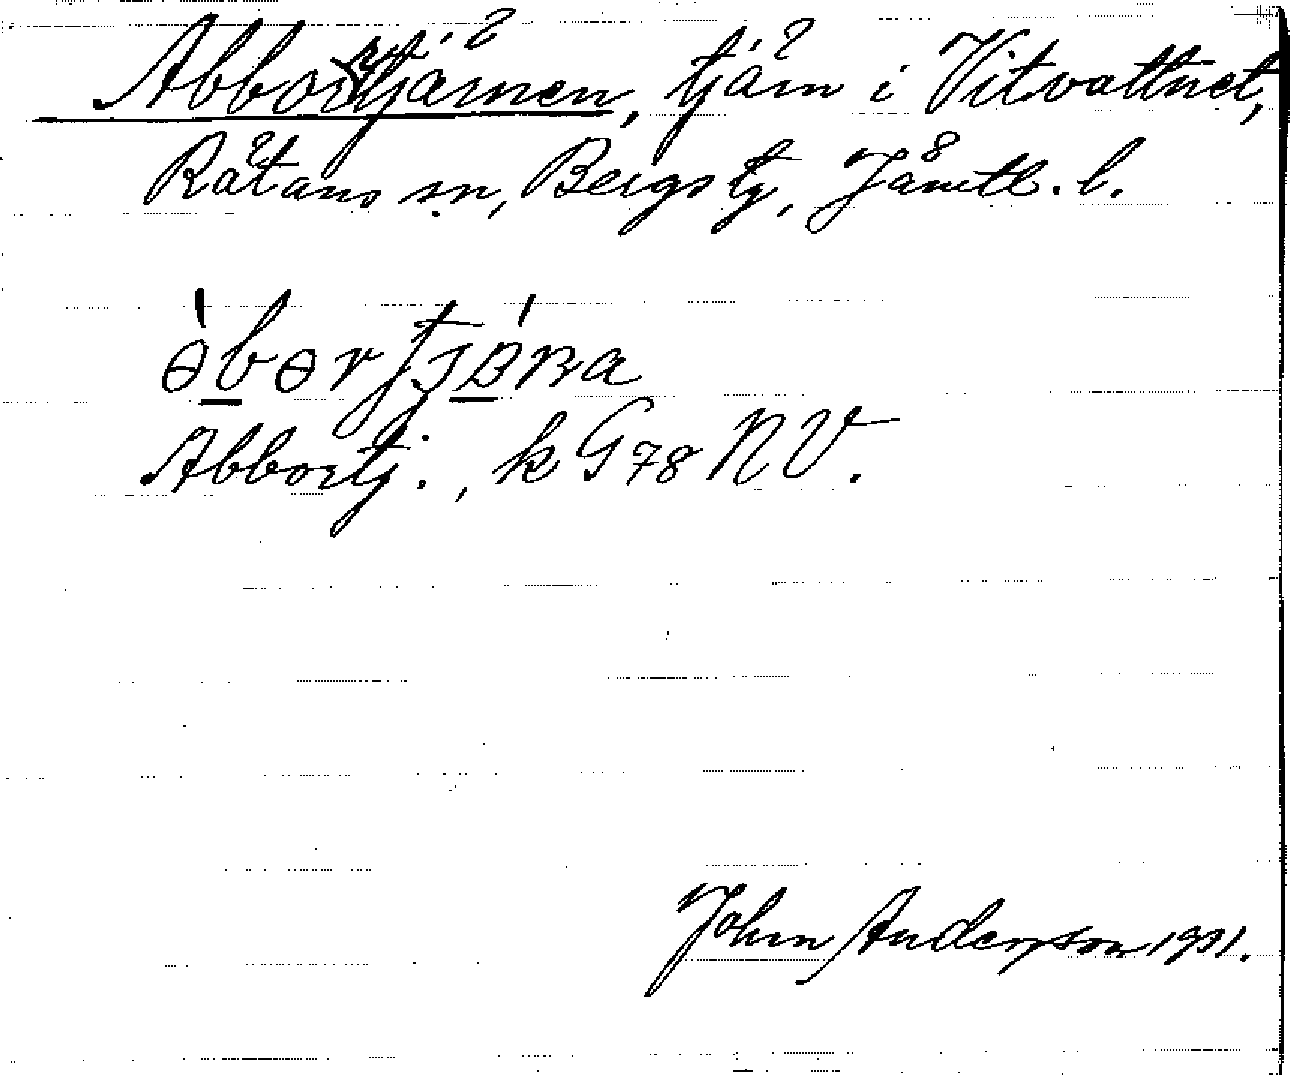 Abbortjärnen, tjärn i Vitvattnet,
Rätans sn, Bergs tg, Jämtl. l.
Abbortj., k G78 NV.
John Anderson 1931.